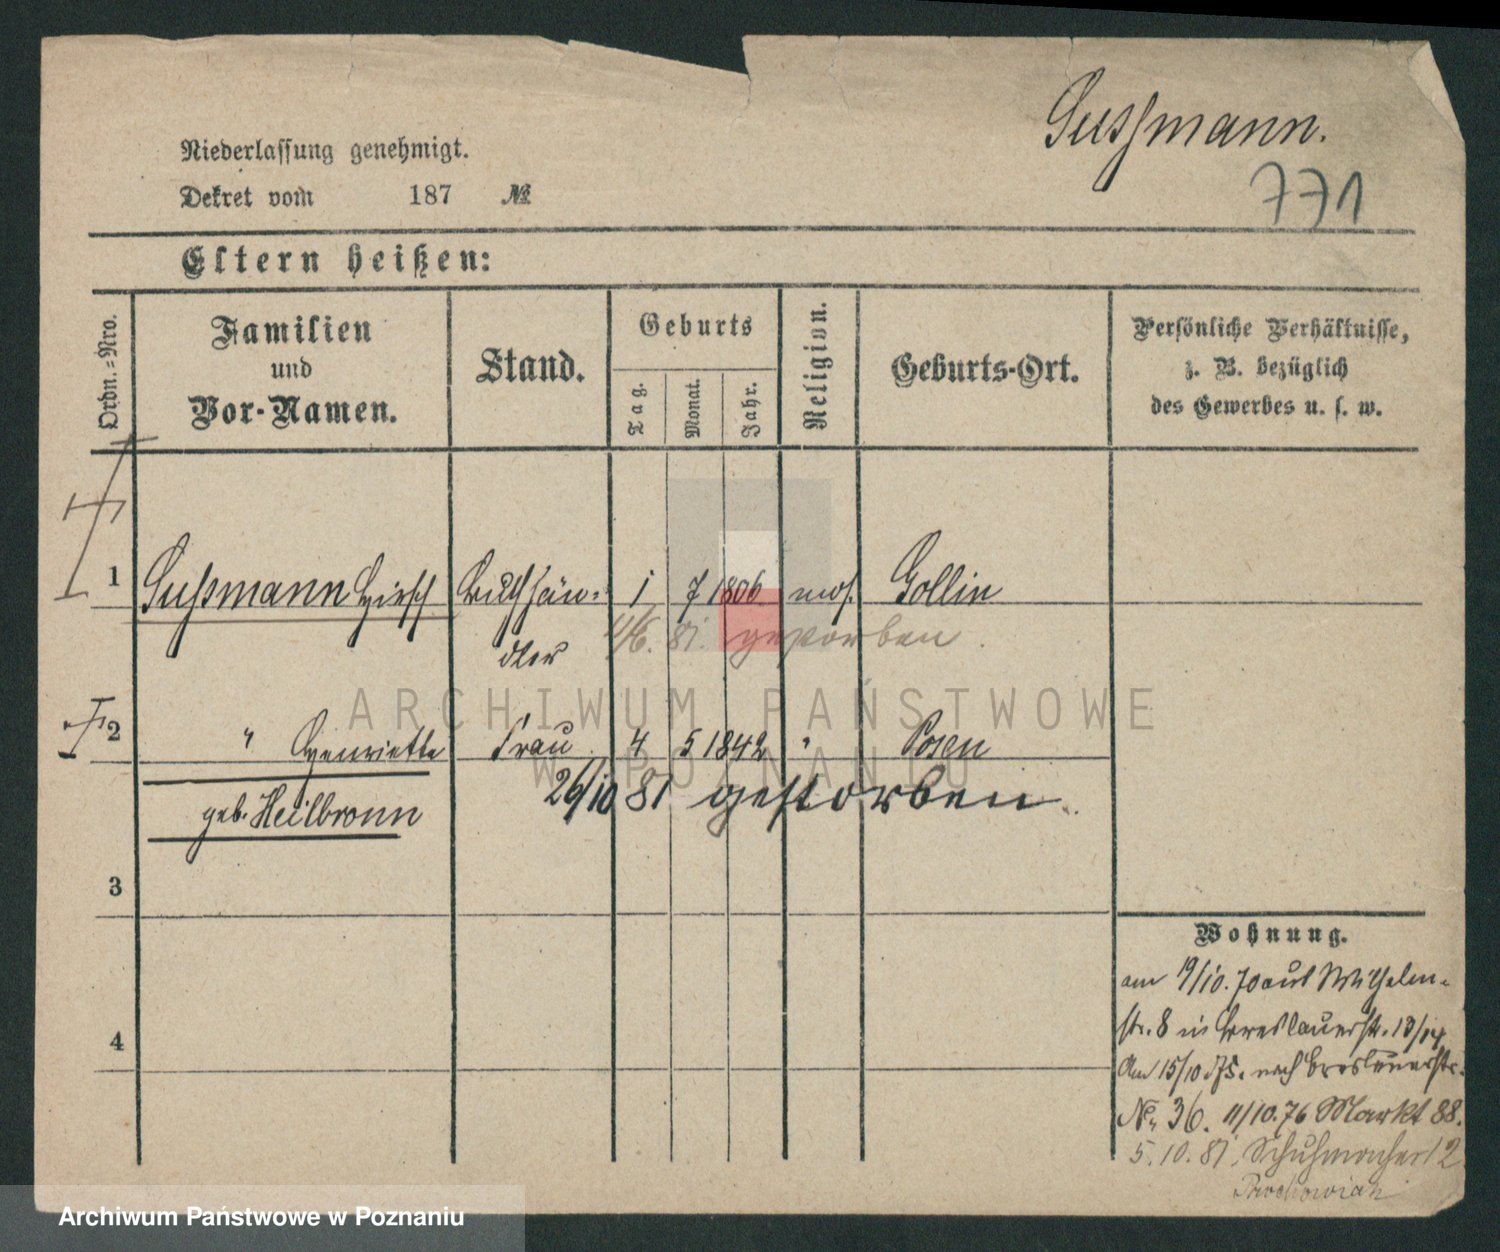 Sussmann.
771
Niederlassung genehmigt.
Dekret vom 187 №
Eltern heißen:
Ordn.-Nro.
Familien und Vor-Namen.
Stand.
Geburts
Tag.
Monat.
Jahr.
Religion.
Geburts-Ort.
Persönliche Verhältnisse,
z. B. bezüglich
des Gewerbes u. s. w.
1 Sussmann Hirsch Buchhän- 1 7 1806 mos. Gollin
dler 81. gestorben.
2 " Henriette Frau 4 5 1842 " Posen
geb. Heilbronn 26/10 81 gestorben.
3
4
Wohnung.
am 19/10. 70 aus Wilhelm-
str. 8 in Breslauerstr. 13/14
Am 15/10 75. nach Breslauerstr.
No. 36. 11/10.76 Markt 88.
5.10.81. Schuhmacherst 12
ARCHIWUM PAŃSTWOWE
W POZNANIU
Archiwum Państwowe w Poznaniu